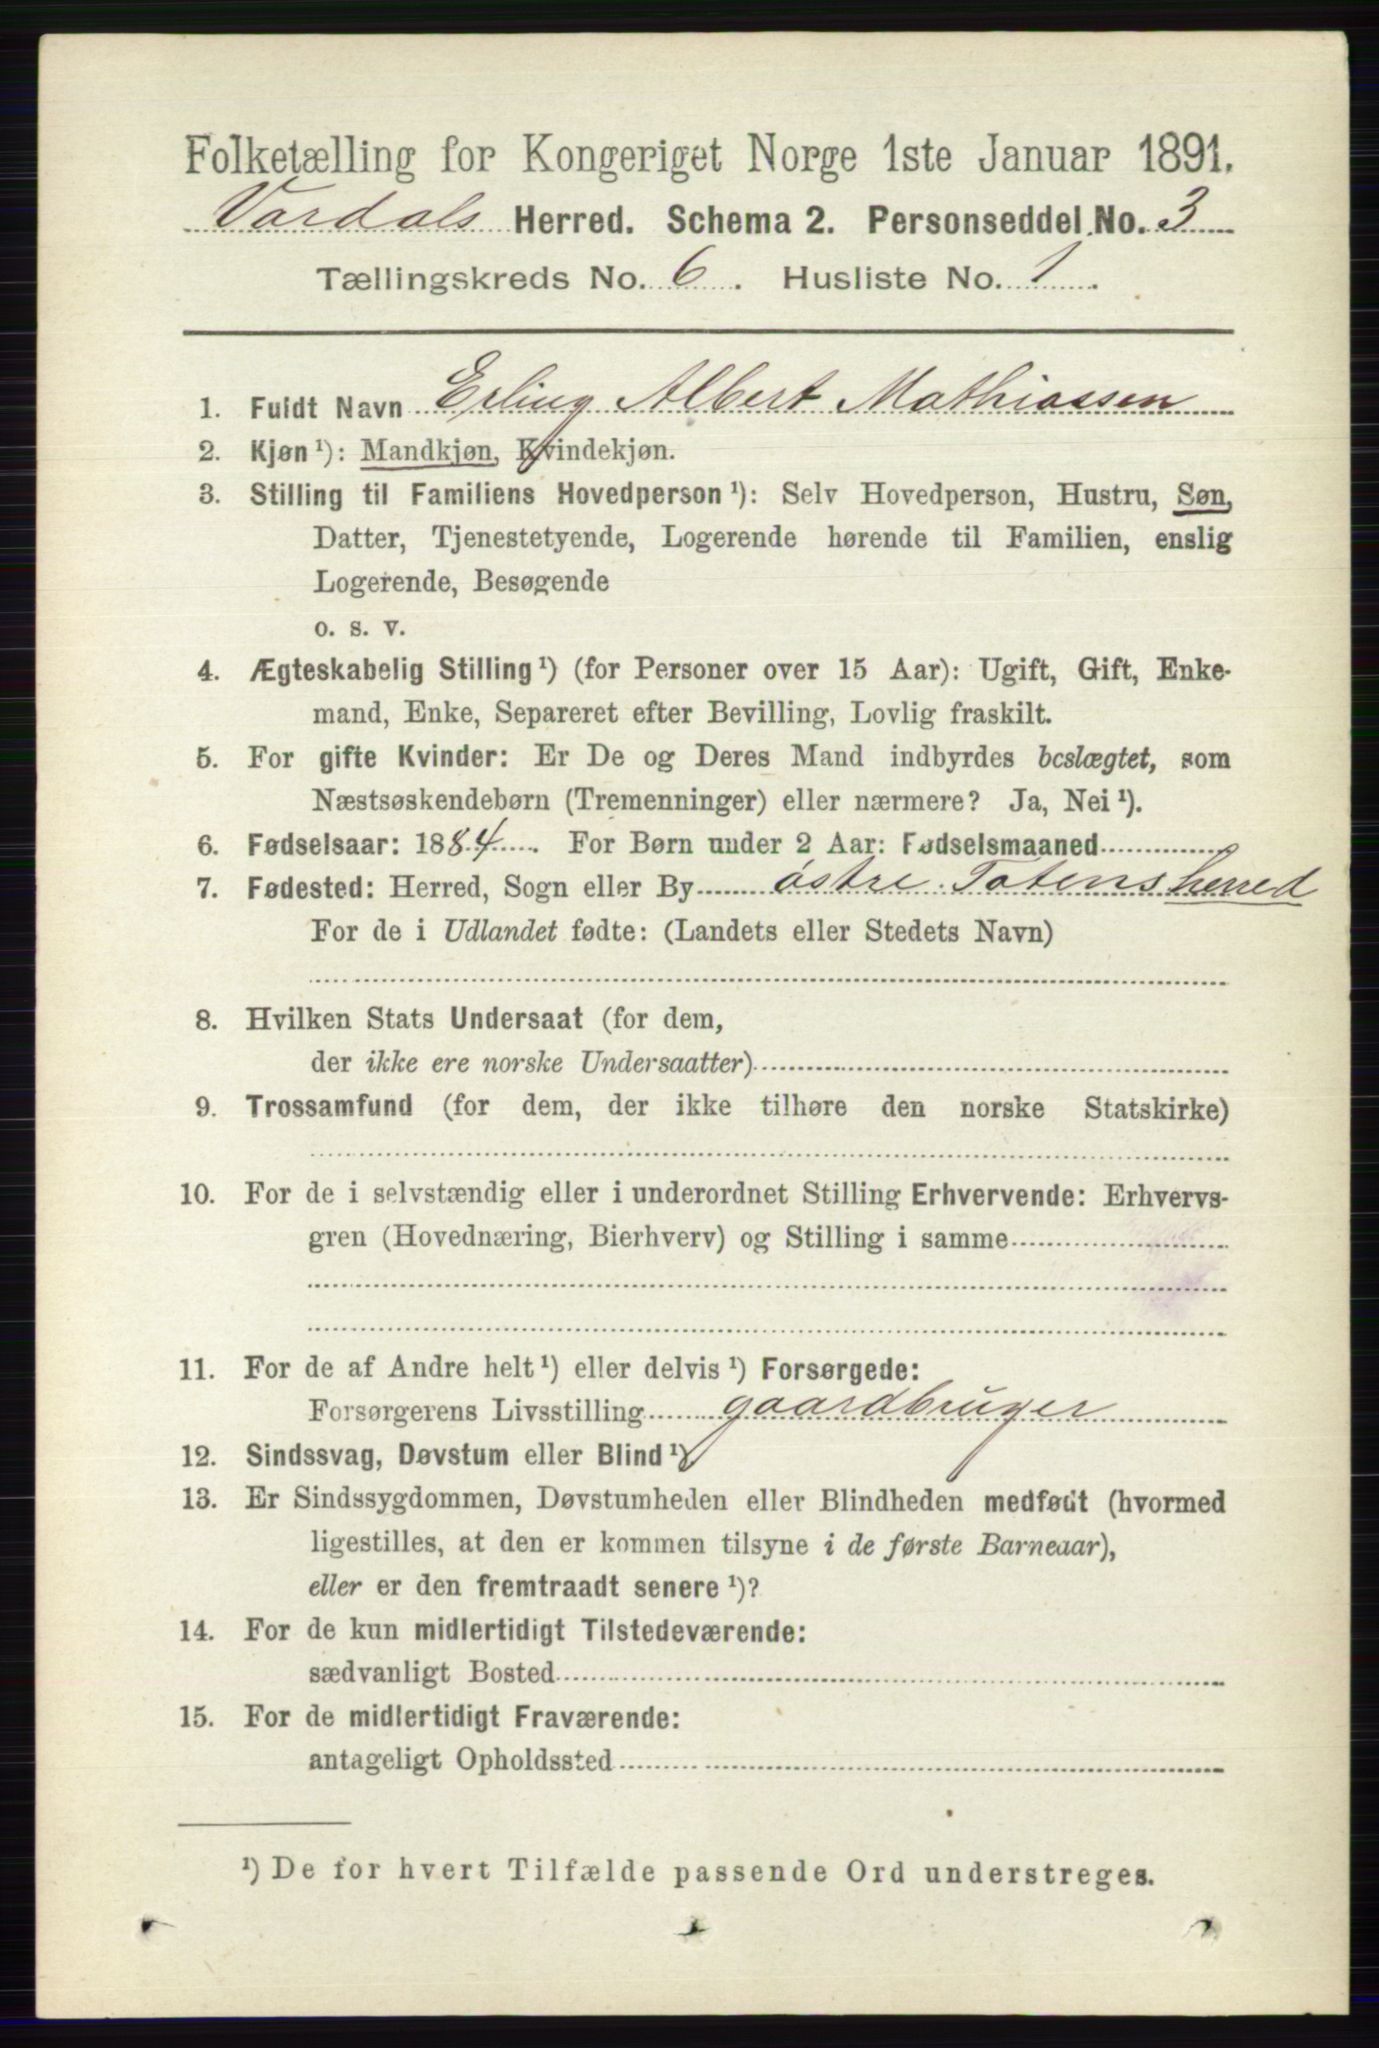 Folketælling for Kongeriget Norge 1ste Januar 1891.
Vardals Herred. Schema 2. Personseddel No. 3
Tællingskreds No. 6. Husliste No. 1.
1. Fuldt Navn Erling Albert Mathiassen
2. Kjøn ¹): Mandkjøn, Kvindekjøn.
3. Stilling til Familiens Hovedperson ¹): Selv Hovedperson, Hustru, Søn,
Datter, Tjenestetyende, Logerende hørende til Familien, enslig
Logerende, Besøgende
o. s. v.
4. Ægteskabelig Stilling ¹) (for Personer over 15 Aar): Ugift, Gift, Enke-
mand, Enke, Separeret efter Bevilling, Lovlig fraskilt.
5. For gifte Kvinder: Er De og Deres Mand indbyrdes beslægtet, som
Næstsøskendebørn (Tremenninger) eller nærmere? Ja, Nei ¹).
6. Fødselsaar: 1884. For Børn under 2 Aar: Fødselsmaaned
7. Fødested: Herred, Sogn eller By østre Totens herred
For de i Udlandet fødte: (Landets eller Stedets Navn)
8. Hvilken Stats Undersaat (for dem,
der ikke ere norske Undersaatter)
9. Trossamfund (for dem, der ikke tilhøre den norske Statskirke)
10. For de i selvstændig eller i underordnet Stilling Erhvervende: Erhvervs-
gren (Hovednæring, Bierhverv) og Stilling i samme
11. For de af Andre helt ¹) eller delvis ¹) Forsørgede:
Forsørgerens Livsstilling gaardbruger
12. Sindssvag, Døvstum eller Blind ¹)
13. Er Sindssygdommen, Døvstumheden eller Blindheden medfødt (hvormed
ligestilles, at den er kommen tilsyne i de første Barneaar),
eller er den fremtraadt senere ¹)?
14. For de kun midlertidigt Tilstedeværende:
sædvanligt Bosted
15. For de midlertidigt Fraværende:
antageligt Opholdssted
¹) De for hvert Tilfælde passende Ord understreges.